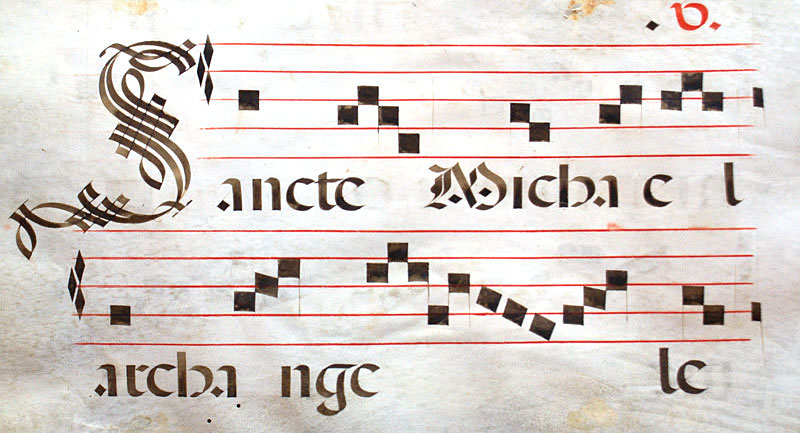 Sancte Michael
archangele